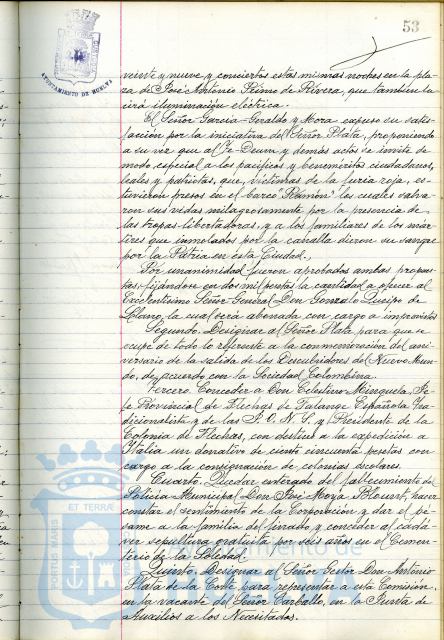 53
AYUNTAMIENTO DE HUELVA
veinte y nueve y conciertos estas mismas noches en la pla
za de José Antonio Primo de Rivera, que tambien lu
cirá iluminación eléctrica.
El Señor Garcia Geraldo y Mora expuso su satis
facción por la iniciativa del Señor Plata, proponiendo
a su vez que al Te-Deum y demás actos se invite de
modo especial a los pacificos y benemeritos ciudadanos,
leales y patriotas, que, victimas de la furia roja, es-
tuvieron presos en el barco "Ramón" los cuales salva
ron sus vidas milagrosamente por la presencia de
las tropas libertadoras, y a los familiares de los már-
tires que inmolados por la canalla dieron su sangre
por la Patria en esta Ciudad.
Por unanimidad fueron aprobados ambas propues
tas, fijándose en dos mil pesetas la cantidad a ofrecer al
Excelentísimo Señor General Don Gonzalo Queipo de
Llano, la cual será abonada con cargo a imprevistos
Segundo. Designar al Señor Plata para que se
ocupe de todo lo referente a la conmemoración del ani-
versario de la salida de los Descubridores del Nuevo Mun-
do, de acuerdo con la Sociedad Colombina.
Tercero. Conceder a Don Celestino Minguela, Je-
fe Provincial de Flechas de Falange Española Tra
dicionalista y de las J.O.N.S. y Presidente de la
Colonia de Flechas, con destino a la expedición a
Italia un donativo de ciento cincuenta pesetas con
cargo a la consignación de colonias escolares.
Cuarto. Quedar enterado del fallecimiento del
Policia Municipal Don José Moya, hacer
constar el sentimiento de la Corporación y dar el pé-
same a la familia del finado y conceder al cadá
ver sepultura gratuita por seis años en el Cemen-
terio de la Soledad.
Quinto. Designar al Señor Gestor Don Antonio
Plata de la Corte para representar a esta Comisión,
en la vacante del Señor Carballo, en la Junta de
Auxilios a los Necesitados.
PORTUS MARIS
ET TERRÆ
Ayuntamiento de